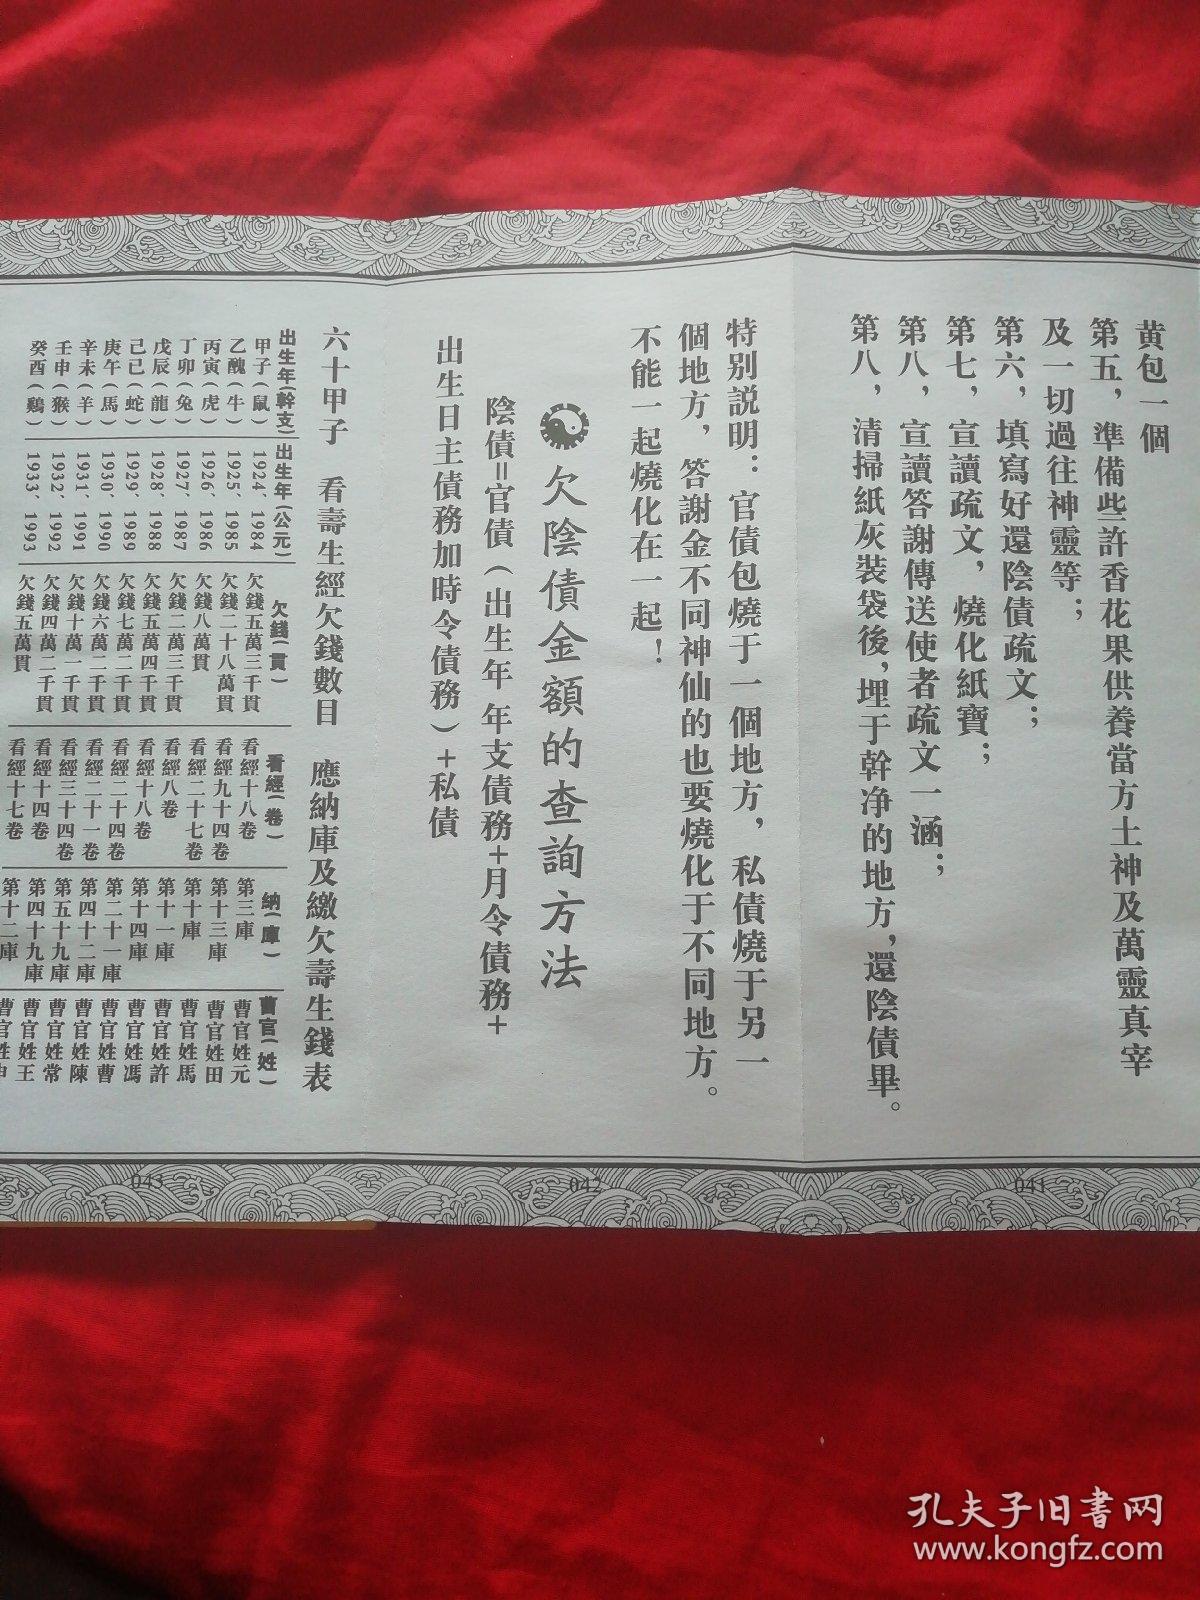 黄包一個
第五，準備些許香花果供養當方土神及萬靈真宰
及一切過往神靈等；
第六，填寫好還陰債疏文；
第七，宣讀疏文，燒化紙寶；
第八，宣讀答謝傳送使者疏文一涵；
第八，清掃紙灰裝袋後，埋于幹净的地方，還陰債畢。
041
特别説明：官債包燒于一個地方，私債燒于另一
個地方，答謝金不同神仙的也要燒化于不同地方。
不能一起燒化在一起！
欠陰債金額的查詢方法
陰債=官債（出生年 年支債務+月令債務+
出生日主債務加時令債務）+私債
042
六十甲子 看壽生經欠錢數目 應納庫及繳欠壽生錢表
出生年(幹支) 出生年(公元) 欠錢(貫) 看經(卷) 納(庫) 曹官(姓)
甲子(鼠) 1924、1984 欠錢五萬三千貫 看經十八卷 第三庫 曹官姓元
乙醜(牛) 1925、1985 欠錢二十八萬貫 看經九十四卷 第十三庫 曹官姓田
丙寅(虎) 1926、1986 欠錢八萬貫 看經二十七卷 第十庫 曹官姓馬
丁卯(兔) 1927、1987 欠錢二萬三千貫 看經八卷 第十一庫 曹官姓許
戊辰(龍) 1928、1988 欠錢五萬四千貫 看經十八卷 第十四庫 曹官姓馮
己巳(蛇) 1929、1989 欠錢七萬二千貫 看經二十四卷 第二十一庫 曹官姓曹
庚午(馬) 1930、1990 欠錢六萬二千貫 看經二十一卷 第四十二庫 曹官姓陳
辛未(羊) 1931、1991 欠錢十萬一千貫 看經三十四卷 第五十九庫 曹官姓常
壬申(猴) 1932、1992 欠錢四萬二千貫 看經十四卷 第四十九庫 曹官姓王
癸酉(鷄) 1933、1993 欠錢五萬貫 看經十七卷 第十二庫 曹官姓申
043
孔夫子旧書网
www.kongfz.com